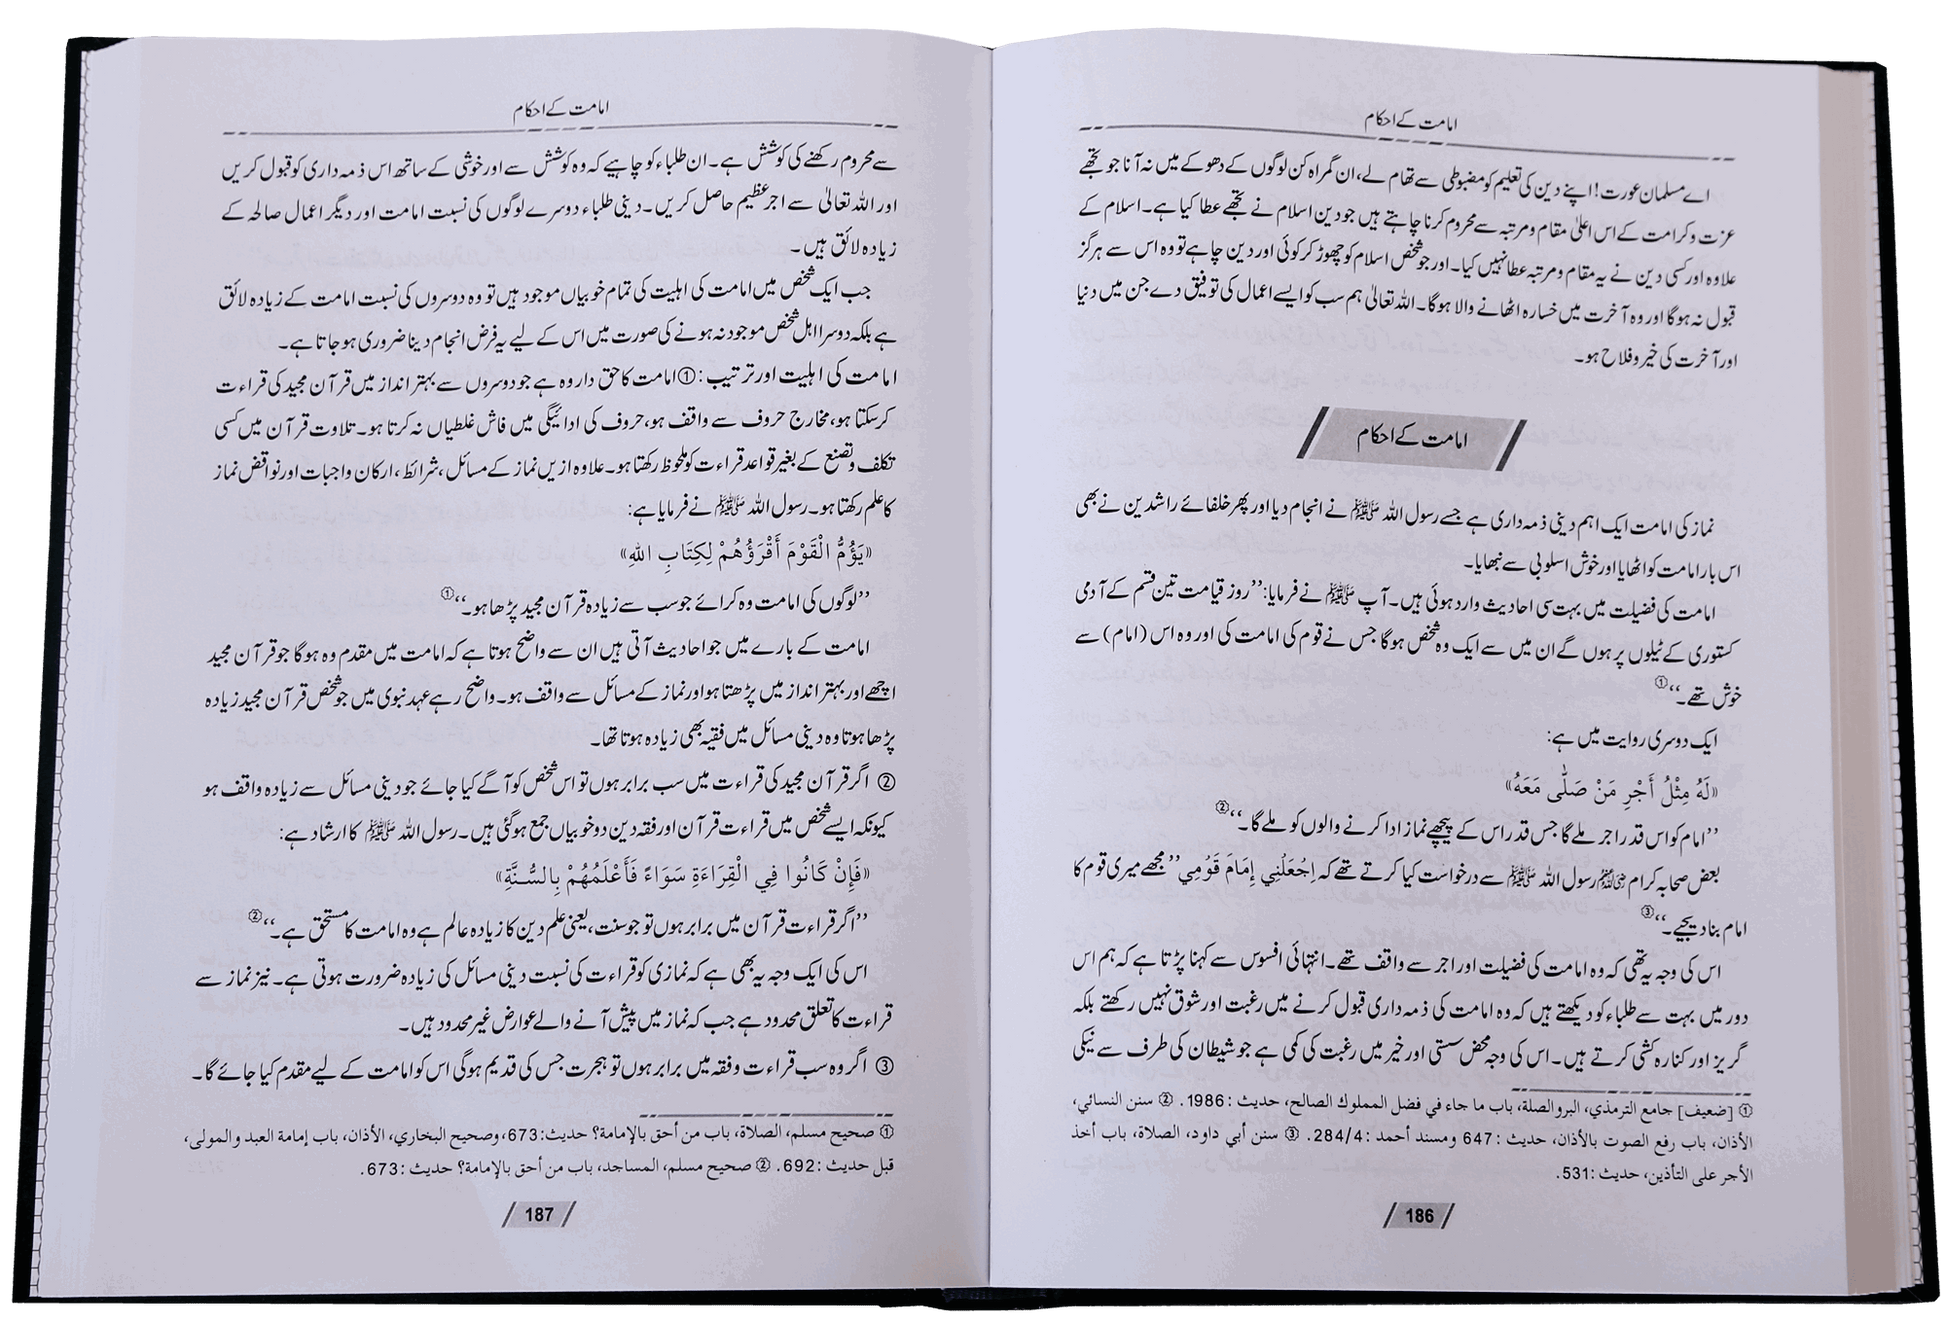 امامت کے احکام
اے مسلمان عورت! اپنے دین کی تعلیم کو مضبوطی سے تھام لے، ان گمراہ کن لوگوں کے دھوکے میں نہ آنا جو تجھے
عزت و کرامت کے اس اعلیٰ مقام و مرتبہ سے محروم کرنا چاہتے ہیں جو دین اسلام نے تجھے عطا کیا ہے۔ اسلام کے
علاوہ اور کسی دین نے یہ مقام و مرتبہ عطا نہیں کیا۔ اور جو شخص اسلام کو چھوڑ کر کوئی اور دین چاہے تو وہ اس سے ہرگز
قبول نہ ہوگا اور وہ آخرت میں خسارہ اٹھانے والا ہوگا۔ اللہ تعالیٰ ہم سب کو ایسے اعمال کی توفیق دے جن میں دنیا
اور آخرت کی خیر و فلاح ہو۔
امامت کے احکام
نماز کی امامت ایک اہم دینی ذمہ داری ہے جسے رسول اللہ ﷺ نے انجام دیا اور پھر خلفائے راشدین نے بھی
اس بار امامت کو اٹھایا اور خوش اسلوبی سے نبھایا۔
امامت کی فضیلت میں بہت سی احادیث وارد ہوئی ہیں۔ آپ ﷺ نے فرمایا: ’’روز قیامت تین قسم کے آدمی
کستوری کے ٹیلوں پر ہوں گے ان میں سے ایک وہ شخص ہوگا جس نے قوم کی امامت کی اور وہ اس (امام) سے
خوش تھے۔‘‘①
ایک دوسری روایت میں ہے:
«لَهُ مِثْلُ أَجْرِ مَنْ صَلَّى مَعَهُ»
’’امام کو اس قدر اجر ملے گا جس قدر اس کے پیچھے نماز ادا کرنے والوں کو ملے گا۔‘‘②
بعض صحابہ کرام رضی اللہ عنہم رسول اللہ ﷺ سے درخواست کیا کرتے تھے کہ اِجْعَلْنِي إِمَامَ قَوْمِي ’’مجھے میری قوم کا
امام بنا دیجیے۔‘‘③
اس کی وجہ یہ تھی کہ وہ امامت کی فضیلت اور اجر سے واقف تھے۔ انتہائی افسوس سے کہنا پڑتا ہے کہ ہم اس
دور میں بہت سے طلباء کو دیکھتے ہیں کہ وہ امامت کی ذمہ داری قبول کرنے میں رغبت اور شوق نہیں رکھتے بلکہ
گریز اور کنارہ کشی کرتے ہیں۔ اس کی وجہ محض سستی اور خیر میں رغبت کی کمی ہے جو شیطان کی طرف سے نیکی
① [ضعيف] جامع الترمذي، البر والصلة، باب ما جاء في فضل المملوك الصالح، حديث: 1986. ② سنن النسائي،
الأذان، باب رفع الصوت بالأذان، حديث: 647 ومسند أحمد: 284/4. ③ سنن أبي داود، الصلاة، باب أخذ
الأجر على التأذين، حديث: 531.
186
امامت کے احکام
سے محروم رکھنے کی کوشش ہے۔ ان طلباء کو چاہیے کہ وہ کوشش سے اور خوشی کے ساتھ اس ذمہ داری کو قبول کریں
اور اللہ تعالیٰ سے اجر عظیم حاصل کریں۔ دینی طلباء دوسرے لوگوں کی نسبت امامت اور دیگر اعمال صالحہ کے
زیادہ لائق ہیں۔
جب ایک شخص میں امامت کی اہلیت کی تمام خوبیاں موجود ہیں تو وہ دوسروں کی نسبت امامت کے زیادہ لائق
ہے بلکہ دوسرا اہل شخص موجود نہ ہونے کی صورت میں اس کے لیے یہ فرض انجام دینا ضروری ہو جاتا ہے۔
امامت کی اہلیت اور ترتیب: ① امامت کا حق دار وہ ہے جو دوسروں سے بہتر انداز میں قرآن مجید کی قراءت
کر سکتا ہو، مخارج حروف سے واقف ہو، حروف کی ادائیگی میں فاش غلطیاں نہ کرتا ہو۔ تلاوت قرآن میں کسی
تکلف و تصنع کے بغیر قواعد قراءت کو ملحوظ رکھتا ہو۔ علاوہ ازیں نماز کے مسائل، شرائط، ارکان واجبات اور نواقض نماز
کا علم رکھتا ہو۔ رسول اللہ ﷺ نے فرمایا ہے:
«يَؤُمُّ الْقَوْمَ أَقْرَؤُهُمْ لِكِتَابِ اللهِ»
’’لوگوں کی امامت وہ کرائے جو سب سے زیادہ قرآن مجید پڑھا ہو۔‘‘①
امامت کے بارے میں جو احادیث آتی ہیں ان سے واضح ہوتا ہے کہ امامت میں مقدم وہ ہوگا جو قرآن مجید
اچھے اور بہتر انداز میں پڑھتا ہو اور نماز کے مسائل سے واقف ہو۔ واضح رہے عہد نبوی میں جو شخص قرآن مجید زیادہ
پڑھا ہوتا وہ دینی مسائل میں فقیہ بھی زیادہ ہوتا تھا۔
② اگر قرآن مجید کی قراءت میں سب برابر ہوں تو اس شخص کو آگے کیا جائے جو دینی مسائل سے زیادہ واقف ہو
کیونکہ ایسے شخص میں قراءت قرآن اور فقہ دین دو خوبیاں جمع ہو گئی ہیں۔ رسول اللہ ﷺ کا ارشاد ہے:
«فَإِنْ كَانُوا فِي الْقِرَاءَةِ سَوَاءً فَأَعْلَمُهُمْ بِالسُّنَّةِ»
’’اگر قراءت قرآن میں برابر ہوں تو جو سنت، یعنی علم دین کا زیادہ عالم ہے وہ امامت کا مستحق ہے۔‘‘②
اس کی ایک وجہ یہ بھی ہے کہ نمازی کو قراءت کی نسبت دینی مسائل کی زیادہ ضرورت ہوتی ہے۔ نیز نماز سے
قراءت کا تعلق محدود ہے جب کہ نماز میں پیش آنے والے عوارض غیر محدود ہیں۔
③ اگر وہ سب قراءت و فقہ میں برابر ہوں تو ہجرت جس کی قدیم ہوگی اس کو امامت کے لیے مقدم کیا جائے گا۔
① صحيح مسلم، الصلاة، باب من أحق بالإمامة؟ حديث: 673، وصحيح البخاري، الأذان، باب إمامة العبد والمولى،
قبل حديث: 692. ② صحيح مسلم، المساجد، باب من أحق بالإمامة؟ حديث: 673.
187